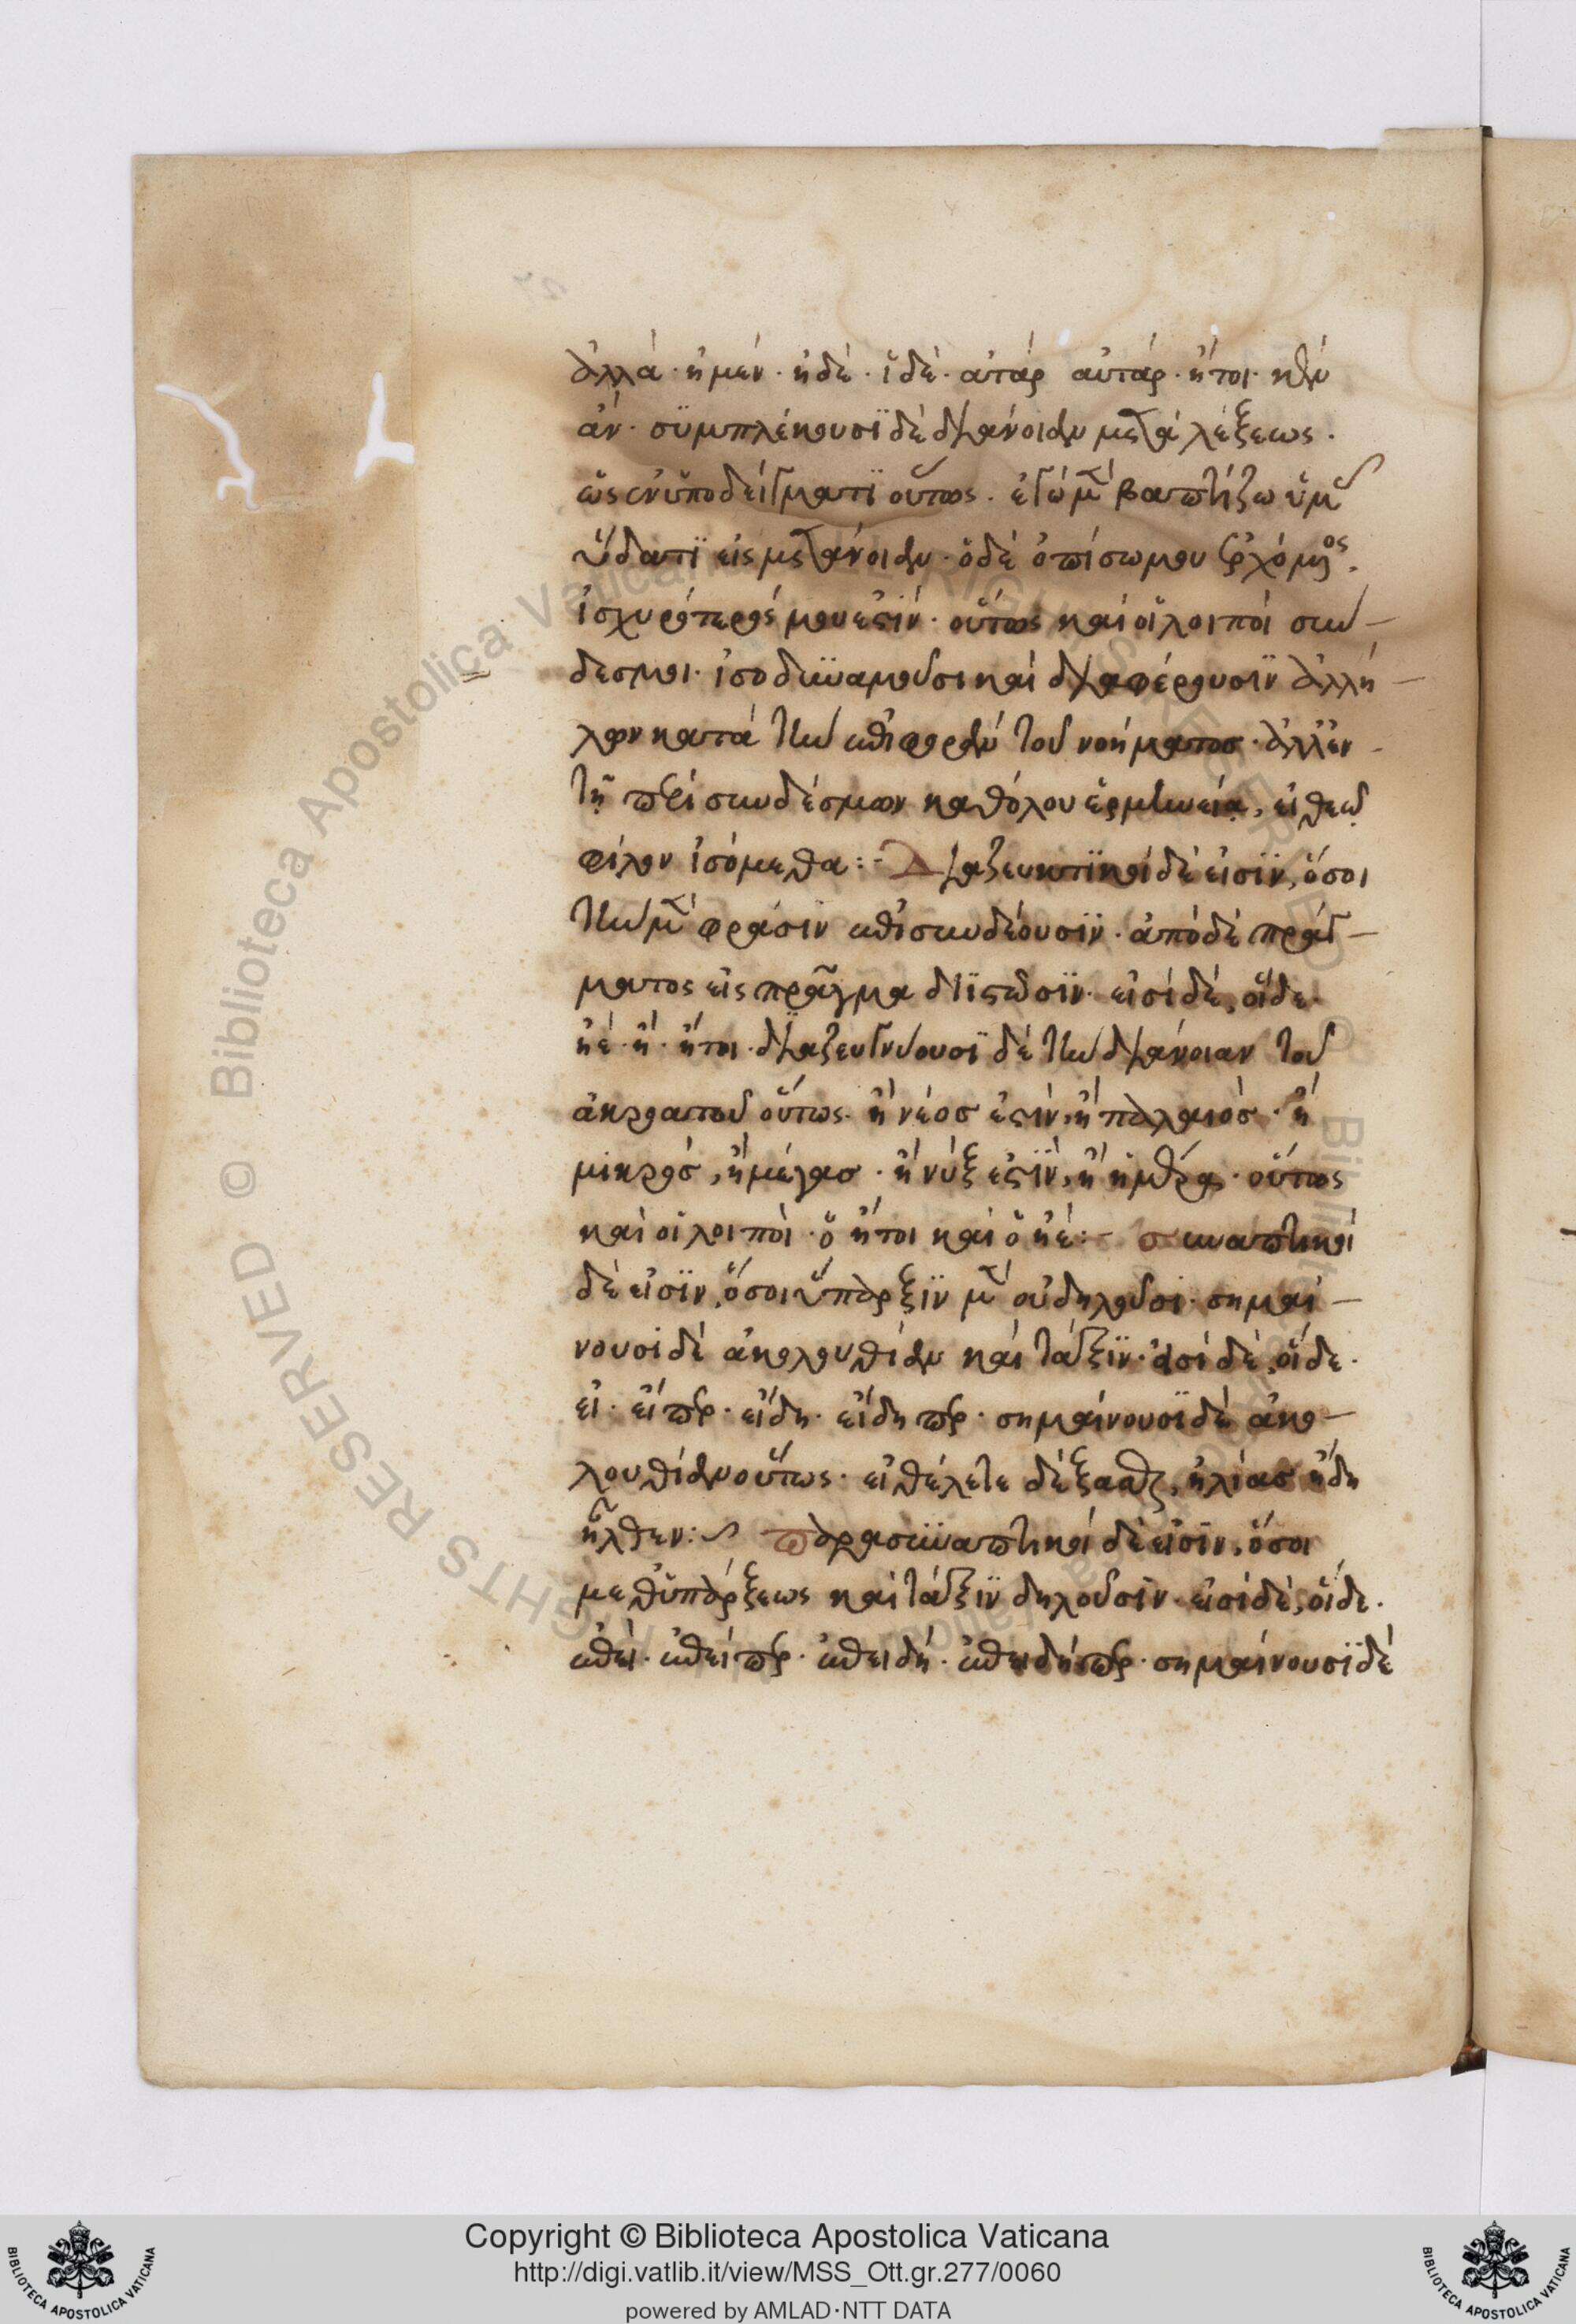 ἀλλά· ἠμέν· ἠδέ· ἰδέ· ἀτάρ αὐτάρ· ἤτοι· κἂν
ἄν· συμπλέκουσι δὲ διάνοιαν μετὰ λέξεως·
ὡς ἐν ὑποδείγματι οὕτως· ἐγὼ μὲν βαπτίζω ὑμᾶς
ὕδατι εἰς μετάνοιαν· ὁ δὲ ὀπίσω μου ἐρχόμενος·
ἰσχυρότερός μου ἐστίν· οὕτως καὶ οἱ λοιποὶ συν–
δεσμοι· ἰσοδυναμοῦσι καὶ διαφέρουσιν ἀλλή–
λων κατὰ τὴν ἐπιφορὰν τοῦ νοήματος· ἀλλ' ἐν
τῇ περὶ συνδέσμων καθόλου ἑρμηνείᾳ, εἰ θεῷ
φίλον εἰσόμεθα:- Διαζευκτικοὶ δέ εἰσιν, ὅσοι
τὴν μὲν φράσιν ἐπισυνδέουσιν· ἀπὸ δὲ πράγ–
ματος εἰς πρᾶγμα διιστῶσιν· εἰσὶ δέ, οἵδε·
ἠέ· ἤ· ἤτοι· διαζευγνύουσι δὲ τὴν διάνοιαν τοῦ
ἀκροατοῦ οὕτως· ἢ νέος ἐστίν, ἢ παλαιός· ἢ
μικρός, ἢ μέγας· ἢ νύξ ἐστιν, ἢ ἡμέρα· οὕτως
καὶ οἱ λοιποί· ὁ ἤτοι καὶ ὁ ἠέ:– συναπτικοὶ
δέ εἰσιν, ὅσοι ὕπαρξιν μὲν οὐ δηλοῦσι· σημαί–
νουσι δὲ ἀκολουθίαν καὶ τάξιν· εἰσὶ δέ, οἵδε·
εἰ· εἴπερ· εἰδή· εἰδήπερ· σημαίνουσι δὲ ἀκο–
λουθίαν οὕτως· εἰ θέλετε δέξασθαι, ἠλίας ἤδη
ἦλθεν:~ παρασυναπτικοὶ δέ εἰσιν, ὅσοι
μεθ' ὑπάρξεως καὶ τάξιν δηλοῦσιν· εἰσὶ δέ, οἵδε·
ἐπεί· ἐπείπερ· ἐπειδή· ἐπειδήπερ· σημαίνουσι δὲ
Copyright © Biblioteca Apostolica Vaticana
http://digi.vatlib.it/view/MSS_Ott.gr.277/0060
powered by AMLAD·NTT DATA